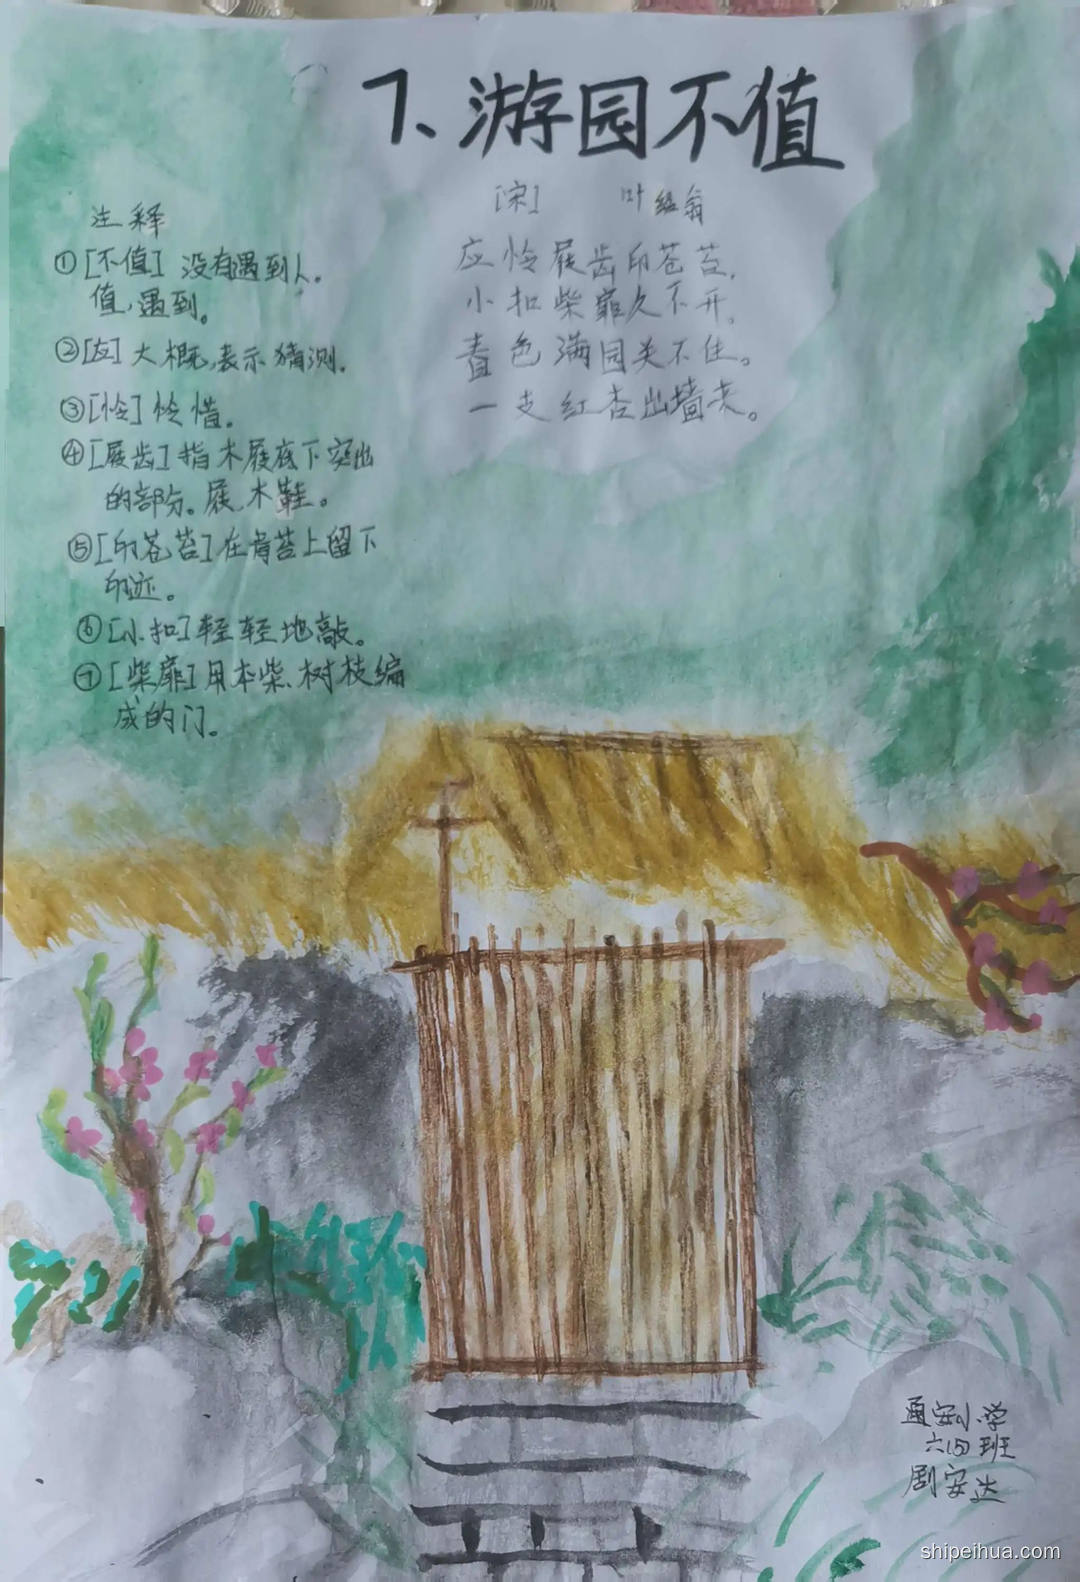 7、游园不值
[宋] 叶绍翁
应怜屐齿印苍苔,
小扣柴扉久不开。
春色满园关不住。
一支红杏出墙来。
注释
①[不值] 没有遇到人。
值,遇到。
②[应] 大概,表示猜测。
③[怜] 怜惜。
④[屐齿] 指木屐底下突出
的部分。屐,木鞋。
⑤[印苍苔] 在青苔上留下
印迹。
⑥[小扣] 轻轻地敲。
⑦[柴扉] 用木柴、树枝编
成的门。
通安小学
六(5)班
剧安达
shipeihua.com